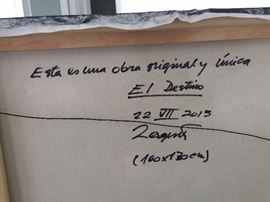 Esta es una obra original y única
El Destino
22 VII 2015
(160x130cm)